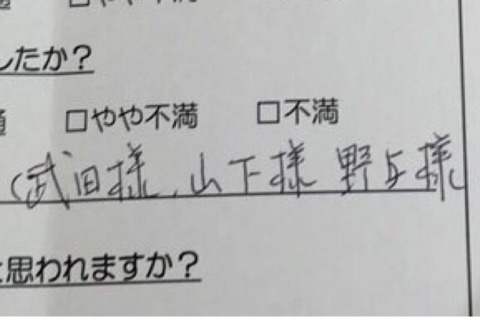 したか？
□やや不満 □不満
(武田様、山下様 野与様
思われますか？